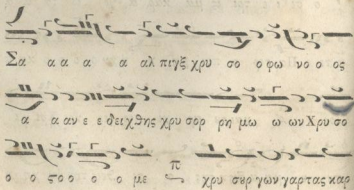 Σα α α α α αλ πιγξ χρυ σο ο φω νο ο ος
α α αν ε ε δειχθης χρυ σορ ρη μω ω ων Χρυ σο
ο ο ςο ο ο ο με π χρυ σουρ γων γαρτας καρ